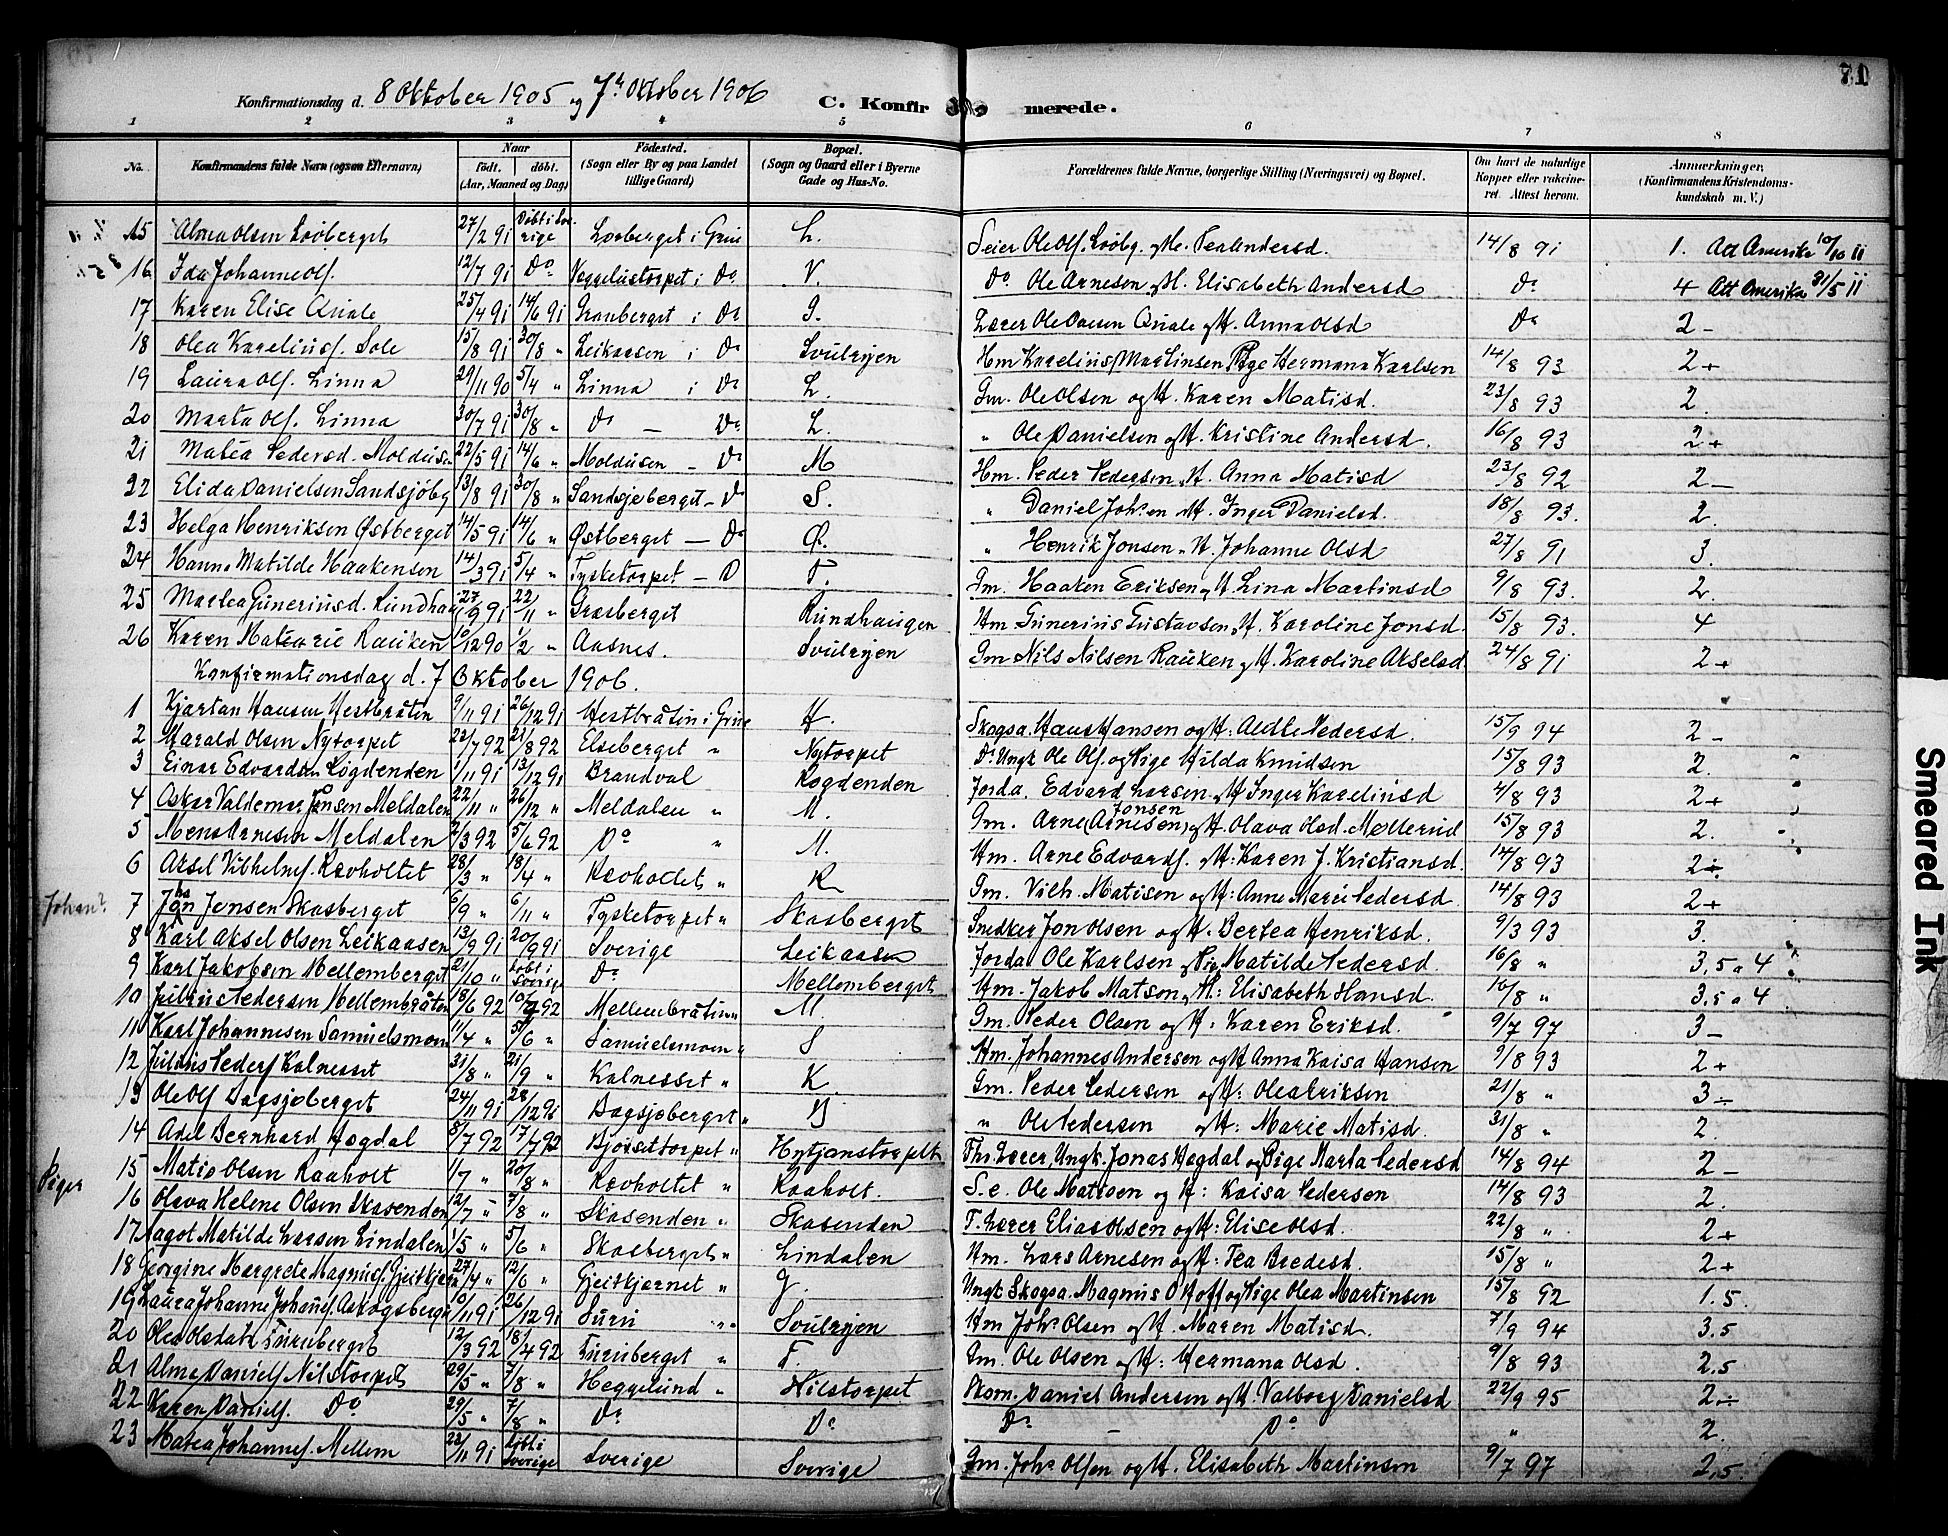 71
Konfirmationsdag d. 8 Oktober 1905 og 7de Oktober 1906 C. Konfirmerede.
1 2 3 4 5 6 7 8
No. Konfirmandens fulde Navn (ogsaa Efternavn) Naar født. døbt. (Aar, Maaned og Dag) Fødested. (Sogn eller By og paa Landet tillige Gaard) Bopæl. (Sogn og Gaard eller i Byerne Gade og Hus-No. Forældrenes fulde Navne, borgerlige Stilling (Næringsvei) og Bopæl. Om havt de naturlige Kopper eller vakcineret. Attest herom. Anmerkninger. (Konfirmandens Kristendomskundskab m. V.)
15 Alma Olsen Lööberget 27/2 91 Döbt i Sverige Lööberget i Grue L. Seier Ole Ols. Lööbg. og H. Tea Andersd. 14/8 91 1. Att Amerika 10/10 11
16 Ida Johanne Ols. 12/7 91 Do Veggelustorpet i Do V. Do Ole Arnesen og H. Elisabeth Andersd Do 4 Att Amerika 31/5 11
17 Karen Elise Quale 25/4 91 14/6 91 Granberget i Do G. Lærer Ole Quale og H. Anna Olsd Do 2-
18 Olea Kareliusf. Sole 15/8 91 30/8 " Leikaasen i Do Svulryen Hm Karelius Martinsen Pige Hermana Karlsen 14/8 93 2+
19 Laura Ols. Linna 29/11 90 5/4 " Linna i Do L. Gm. Ole Olsen og H. Karen Matisd. 23/8 93 2.
20 Marta Ols. Linna 30/7 91 30/8 " Do - Do L. " Ole Danielsen og H. Kristine Andersd. 16/8 93 2+
21 Matea Pedersd. Moldusen 22/5 91 14/6 " Moldusen - Do M Hm. Peder Pedersen, H. Anna Matisd 23/8 92 2-
22 Elida Danielsen Sandsjöbg 13/8 91 30/8 " Sandsjöberget - Do S. " Daniel Johsen og H. Inger Danielsd. 18/8 93. 2.
23 Helga Henriksen Østberget 14/5 91 14/6 " Østberget - Do Ø. " Henrik Jonsen, H. Johanne Olsd 27/8 91 3.
24 Hanna Matilde Haakensen 14/3 91 5/4 " Tysketorpet - D T. Gm. Haaken Eriksen og H. Lina Martinsd 9/8 93. 2.
25 Martea Guneriusd. Rundhau 27/9 91 22/11 " Grasberget Rundhaugen Hm Gunerius Gustavsen, H. Karoline Jonsd. 15/8 93. 4
26 Karen Matearie Rauken 10/12 90 1/2 " Aasnes. Svulryen Gm Nils Nilsen Rauken og H. Karoline Akselsd 24/8 91 2+
Konfirmationsdag d. 7 Oktober 1906.
1 Kjartan Hansen Hestbråten 9/11 91 26/12 91 Hestbråten i Grue H. Skogsa. Hans Hansen og H. Pedersd. 15/9 94 2-
2 Harald Olsen Nytorpet 22/7 92 21/8 92 Elseberget " Nytorpet Do Ungk Ole Ols. og Pige Hilda Knudsen 15/8 93 2.
3 Einar Edvardsen Rögdenden 1/11 91 13/12 91 Brandval Rögdenden Jorda. Edvard Larsen og H Inger Kareliusd 4/8 93 2+
4 Oskar Valdemar Jonsen Meldalen 22/11 " 26/12 " Meldalen " M. Gm. Arne (Arnesen) Jonsen og H. Olava Olsd. Møllerud 15/8 93 2.
5 Mons Arnesen Meldalen 2/3 92 5/6 92 Do " M. Hm. Arne Edvards. og H: Karen J. Kristiansd. 14/8 93 2÷
6 Aksel Vilhelms. Rævholtet 28/3 " 18/4 " Rævholtet " R Gm. Vilh. Matisen og H: Anne Marie Pedersd. 14/8 93 2+
Johan? 7 Johan Jonsen Skasberget 6/9 " 6/11 " Tysketorpet " Skasberget Snedker Jon Olsen og H: Bertea Henriksd. 9/3 93 3.
8 Karl Aksel Olsen Leikaasen 13/9 91 20/9 91 Sverige Leikaasen Jorda Ole Karlsen og Pig. Matilde Pedersd. 16/8 " 3,5 a 4
9 Karl Jakobsen Mellemberget 21/10 " Döbt i Sverige Do Mellemberget Hm. Jakob Matson, H: Elisabeth Hansd. 16/8 " 3,5 a 4
10 Julius Pedersen Mellembråten 18/6 92 10/7 92 Mellembråten " M. Gm. Peder Olsen og H: Karen Eriksd. 9/7 97 3-
11 Karl Johannesen Samuelsmoen 11/4 " 5/6 " Samuelsmoen " S Hm. Johannes Andersen og H Anna Kaisa Hansen 9/8 93 2+
12 Julius Peders Kalnesset 31/8 " 21/9 " Kalnesset " K Gm. Peder Pedersen og H: Olea Eriksen 21/8 " 3÷
13 Ole Ols Dagsjøberget 24/11 91 28/12 91 Dagsjøberget " D " Ole Pedersen og H: Marie Matisd. 31/8 " 2.
14 Adel Bernhard Hogdal 8/7 92 17/7 92 Bjørsetorpet " Hytjanstorpet Fhv. Lærer, Ungk. Jonas Hagdal og Pige Marta Pedersd 14/8 94 2-
Piger 15 Matia Olsen Raaholt 1/7 " 20/8 " Rævholtet " Raaholt. S.e. Ole Matisen og H: Kaisa Pedersen 14/8 93 2.
16 Olava Helene Olsen Skasenden 12/7 " 7/8 " Skasenden " Skasenden F. Lærer Elias Olsen og H: Elise Olsd. 22/8 " 2+
17 Aagot Matilde Larsen Lindalen 1/5 " 5/6 " Skasberget " Lindalen Hm. Lars Arnesen og H: Tea Bredesd. 15/8 " 2+
18 Georgine Margrete Magnusf. Geitkjern 27/4 " 12/6 " Gjeitkjernet " G. Ungk Skogsa. Magnus O Hoff og Pige Olea Martinsen 15/8 92 1.5.
19 Laura Johanne Johansf. Askogsberget 10/11 91 26/12 91 Furu " Svulryen Hm Johs Olsen og H. Maren Matisd. 7/9 94 3.5
20 Olea Olsdatt. Furuberget 12/3 92 18/4 92 Furuberget " F. Gm. Ole Olsen og H: Hermana Olsd. 9/8 93 2.5
21 Alma Daniels Nilstorpet 29/5 " 7/8 " Heggelund " Nilstorpet Skom. Daniel Andersen og H. Valborg Danielsd 22/9 95 2÷
22 Karen Daniels. Do 29/5 " 7/8 " Do Do Do - Do " 2.
23 Matea Johannes. Mellem 22/11 91 Döbt i Sverige Sverige Sverige Gm. Johs Olsen og H. Elisabeth Martinsen 9/7 97 2,5.
Smeared Ink